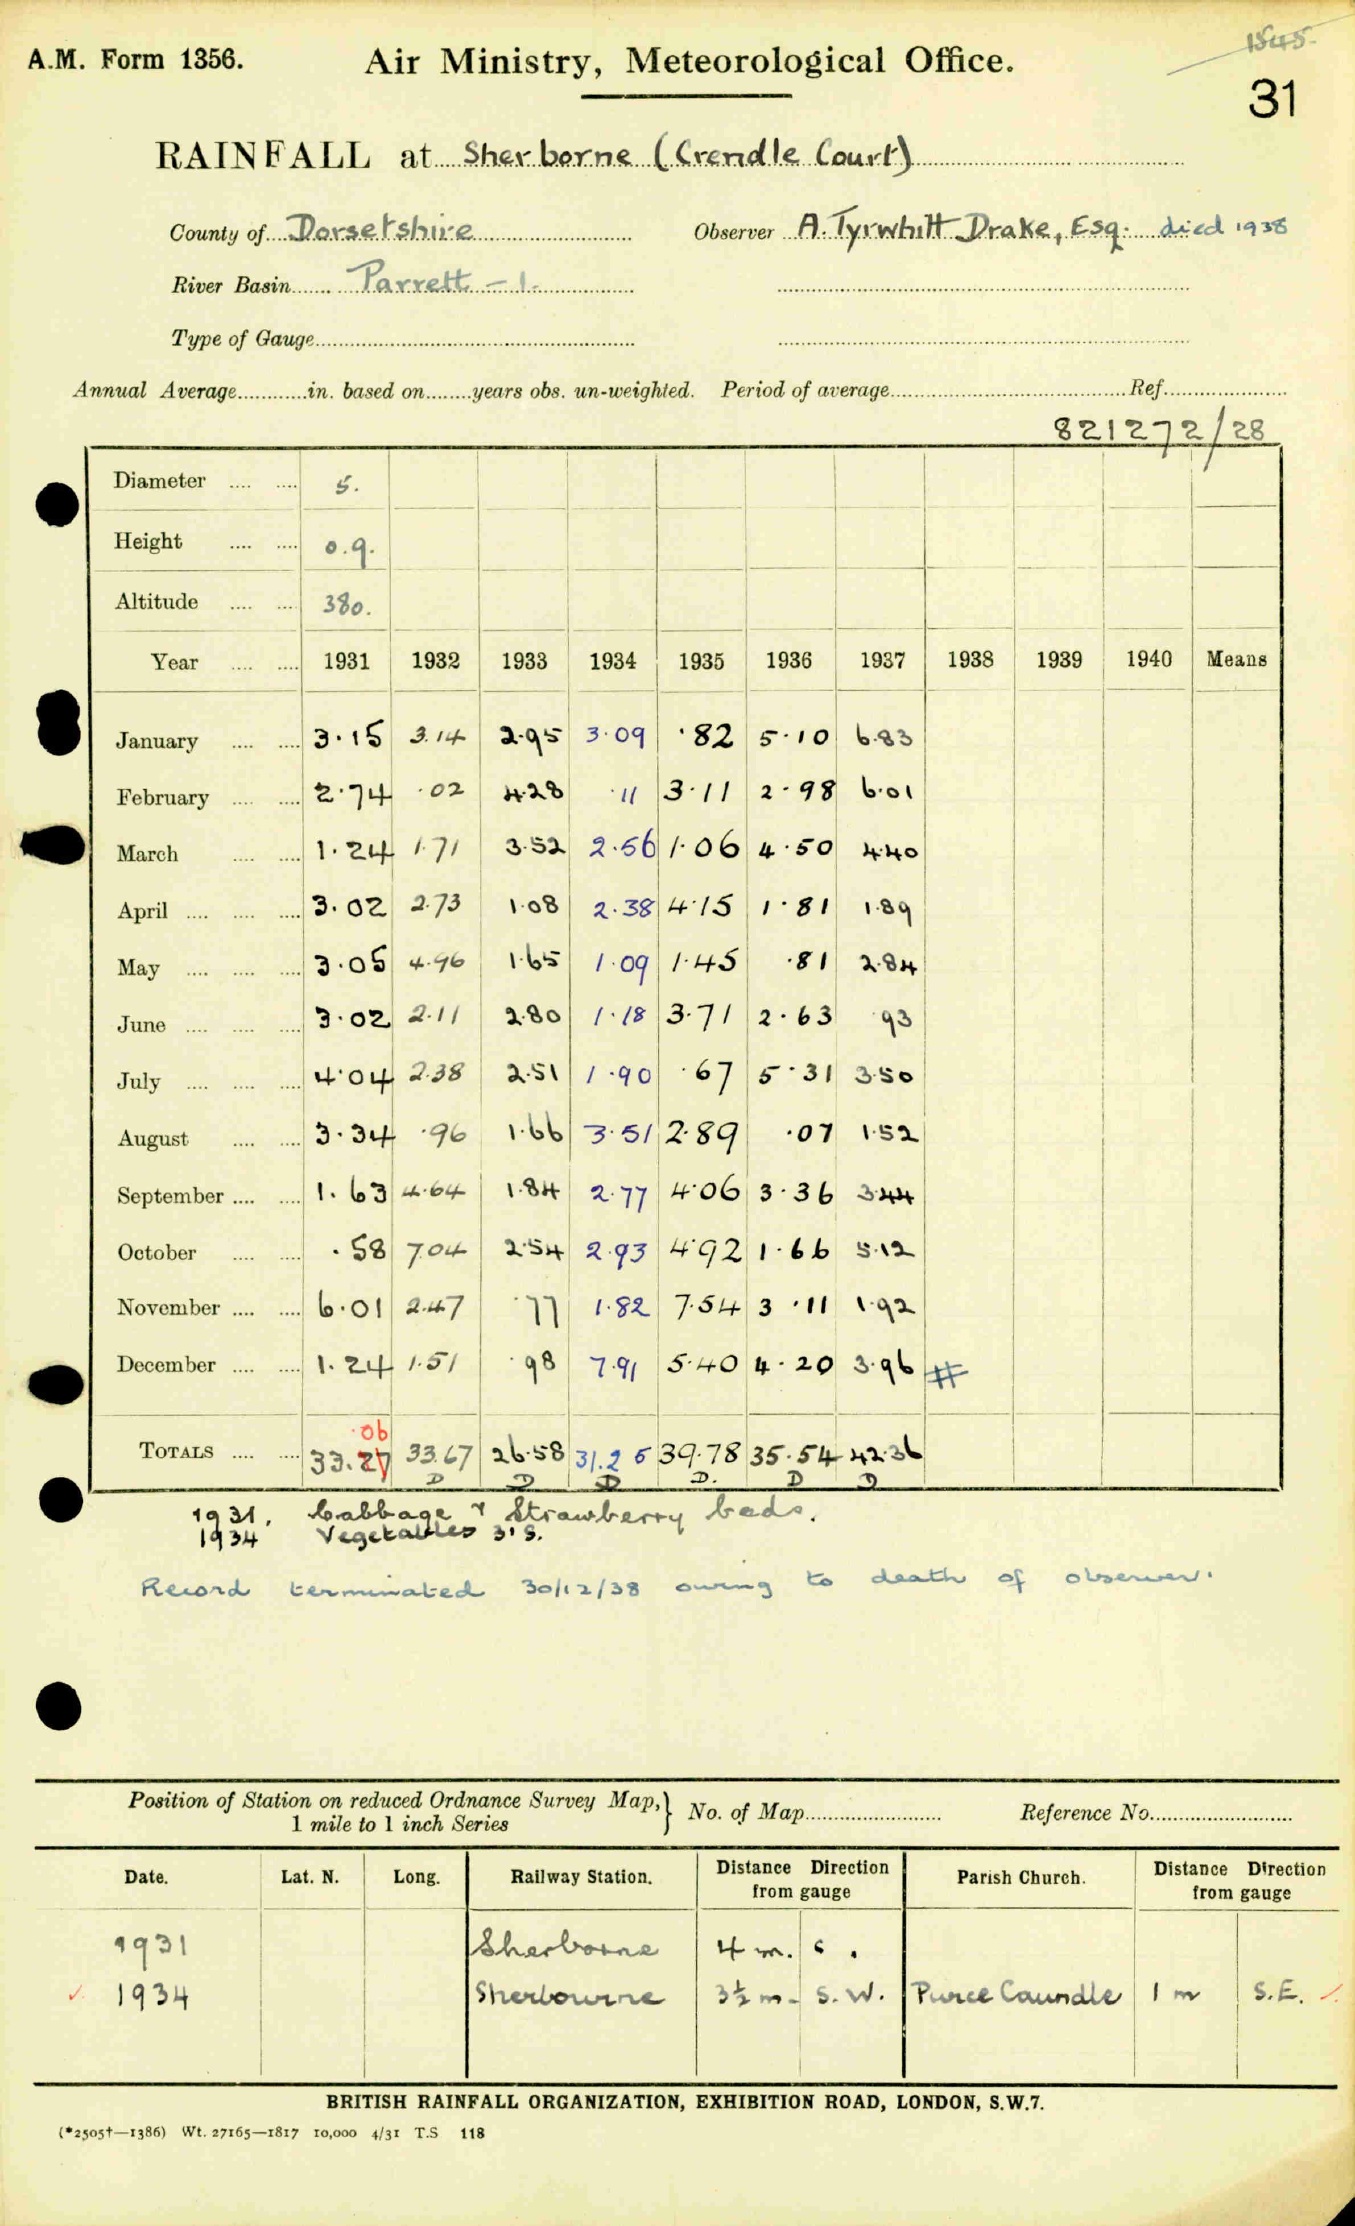 1545.
A.M. Form 1356. Air Ministry, Meteorological Office.
31
RAINFALL at Sherborne (Crendle Court)
County of Dorsetshire Observer A. Tyrwhitt Drake, Esq. died 1938
River Basin Parrett - 1.
Type of Gauge
Annual Average in. based on years obs. un-weighted. Period of average Ref.
821272/28
Diameter 5.
Height 0.9.
Altitude 380.
Year 1931 1932 1933 1934 1935 1936 1937 1938 1939 1940 Means
January 3.15 3.14 2.95 3.09 .82 5.10 6.83
February 2.74 .02 4.28 .11 3.11 2.98 6.01
March 1.24 1.71 3.52 2.56 1.06 4.50 4.40
April 3.02 2.73 1.08 2.38 4.15 1.81 1.89
May 3.05 4.96 1.65 1.09 1.45 .81 2.84
June 3.02 2.11 2.80 1.18 3.71 2.63 .93
July 4.04 2.38 2.51 1.90 .67 5.31 3.50
August 3.34 .96 1.66 3.51 2.89 .07 1.52
September 1.63 4.64 1.84 2.77 4.06 3.36 3.44
October .58 7.04 2.54 2.93 4.92 1.66 5.12
November 6.01 2.47 .77 1.82 7.54 3.11 1.92
December 1.24 1.51 .98 7.91 5.40 4.20 3.96 #
.06
TOTALS 33.27 33.67 26.58 31.25 39.78 35.54 42.36
D D D D. D D
1931. Cabbage & Strawberry beds.
1934 Vegetables 3' S.
Record terminated 30/12/38 owing to death of observer.
Position of Station on reduced Ordnance Survey Map, 1 mile to 1 inch Series } No. of Map Reference No.
Date. Lat. N. Long. Railway Station. Distance Direction from gauge Parish Church. Distance Direction from gauge
1931 Sherborne 4 m.
1934 Sherbourne 3½ m. S.W. Purce Caundle 1 m S.E.
BRITISH RAINFALL ORGANIZATION, EXHIBITION ROAD, LONDON, S.W.7.
(*2505†—1386) Wt. 27165—1817 10,000 4/31 T.S 118